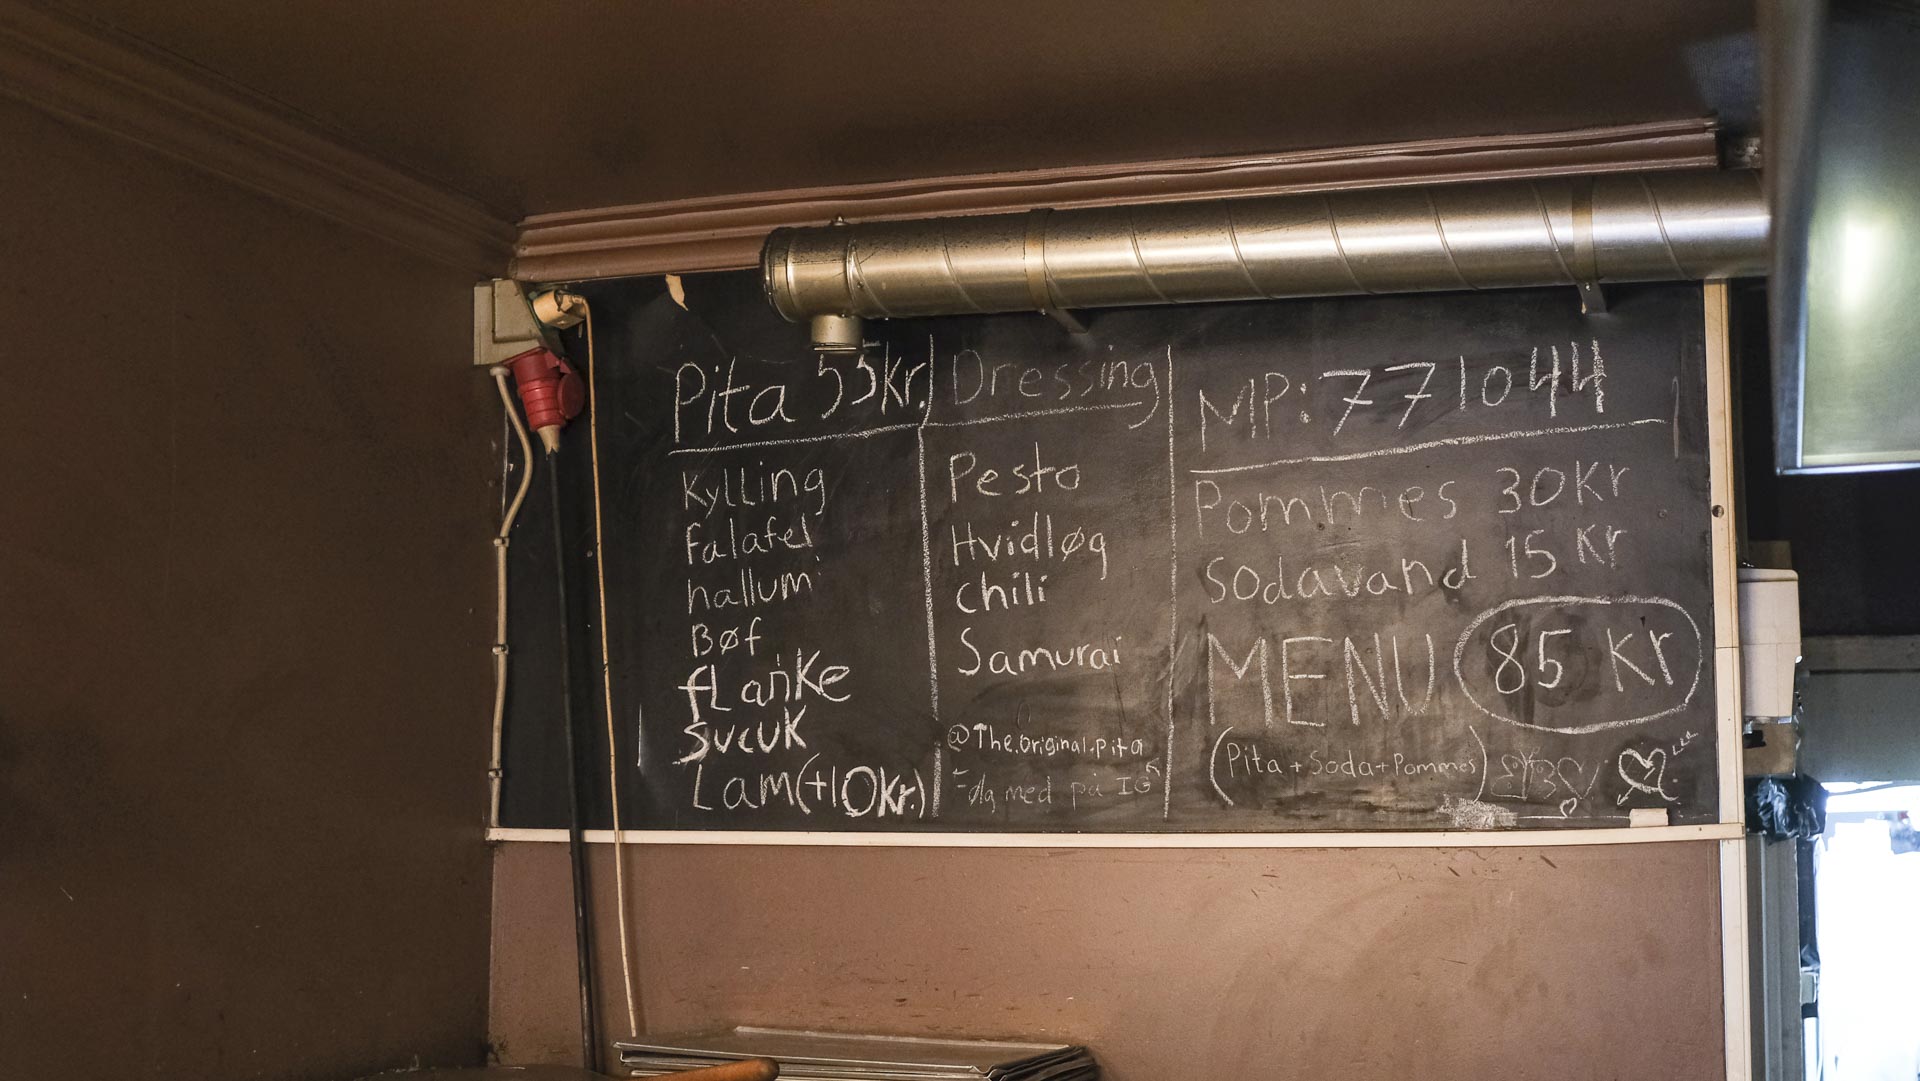 Pita 55kr.
Kylling
falafel
hallumi
Bøf
fLanke
sucuk
Lam(+10kr.)
Dressing
Pesto
Hvidløg
chili
Samurai
@The.original.pita
også med på IG
MP: 771044
Pommes 30Kr
Sodavand 15 Kr
MENU 85 Kr
(Pita + Soda + Pommes)